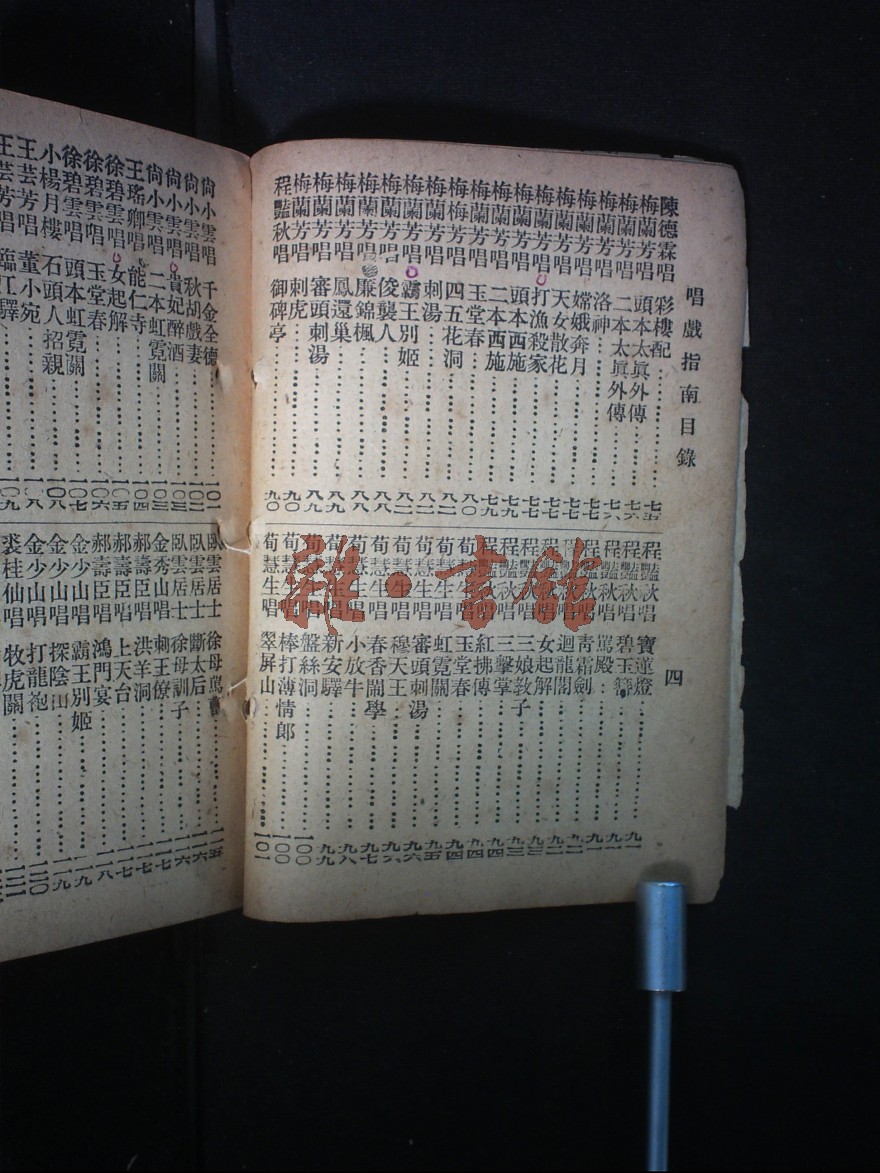 唱戲指南目錄
四
陳德霖唱 彩樓配 七五
梅蘭芳唱 頭本太眞外傳 七六
梅蘭芳唱 二本太眞外傳 七六
梅蘭芳唱 洛神
梅蘭芳唱 嫦娥奔月 七七
梅蘭芳唱 天女散花 七七
梅蘭芳唱 打漁殺家
梅蘭芳唱 頭本西施
梅蘭芳唱 二本西施 七九
梅蘭芳唱 玉堂春 八〇
梅蘭芳唱 四五花洞
梅蘭芳唱 刺湯
梅蘭芳唱 霸王別姬
梅蘭芳唱 俊襲人
梅蘭芳唱 廉錦楓
梅蘭芳唱 鳳還巢
梅蘭芳唱 審頭刺湯
梅蘭芳唱 刺虎 九〇
程豔秋唱 御碑亭 九〇
程豔秋唱 寶蓮燈 九一
程豔秋唱 碧玉簪
程豔秋唱 罵殿
程豔秋唱 青霜劍
程豔秋唱 迴龍閣
程豔秋唱 女起解
程豔秋唱 三娘教子 九三
程豔秋唱 三擊掌
程豔秋唱 紅拂傳 九四
荀慧生唱 玉堂春 九四
荀慧生唱 虹霓關 九五
荀慧生唱 審頭刺湯
荀慧生唱 穆天王 九六
荀慧生唱 春香鬧學 九七
荀慧生唱 小放牛 九八
荀慧生唱 新安驛 九九
荀慧生唱 盤絲洞 一〇〇
荀慧生唱 棒打薄情郎 一〇〇
荀慧生唱 翠屏山 一〇一
尚小雲唱 千金全德 一〇一
尚小雲唱 秋胡戲妻
尚小雲唱 貴妃醉酒
尚小雲唱 二本虹霓關
王瑤卿唱 能仁寺 一〇四
徐碧雲唱 女起解 一〇五
徐碧雲唱 玉堂春 一〇六
徐碧雲唱 頭本虹霓關
小楊月樓 石頭人招親 一〇八
王芸芳唱 董小宛 一〇八
王芸芳唱 臨江驛 一〇九
臥雲居士 徐母罵曹 一一五
臥雲居士 斷太后 一一六
臥雲居士 徐母訓子 一一六
金秀山唱 刺王僚 一一七
郝壽臣唱 洪羊洞 一一七
郝壽臣唱 上天台
郝壽臣唱 鴻門宴 一一八
金少山唱 霸王別姬 一一九
金少山唱 探陰山 一一九
金少山唱 打龍袍 一二〇
裘桂仙唱 牧虎關
雜·書館